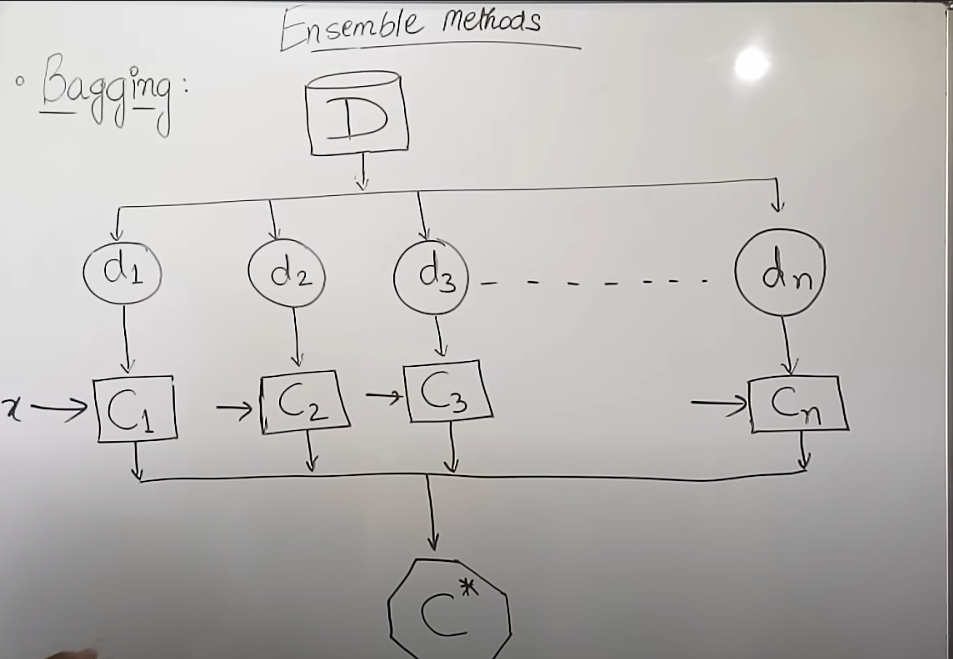 Ensemble methods
• Bagging:
D
d1 d2 d3 - - - - - - - dn
x → C1 → C2 → C3 → Cn
C*